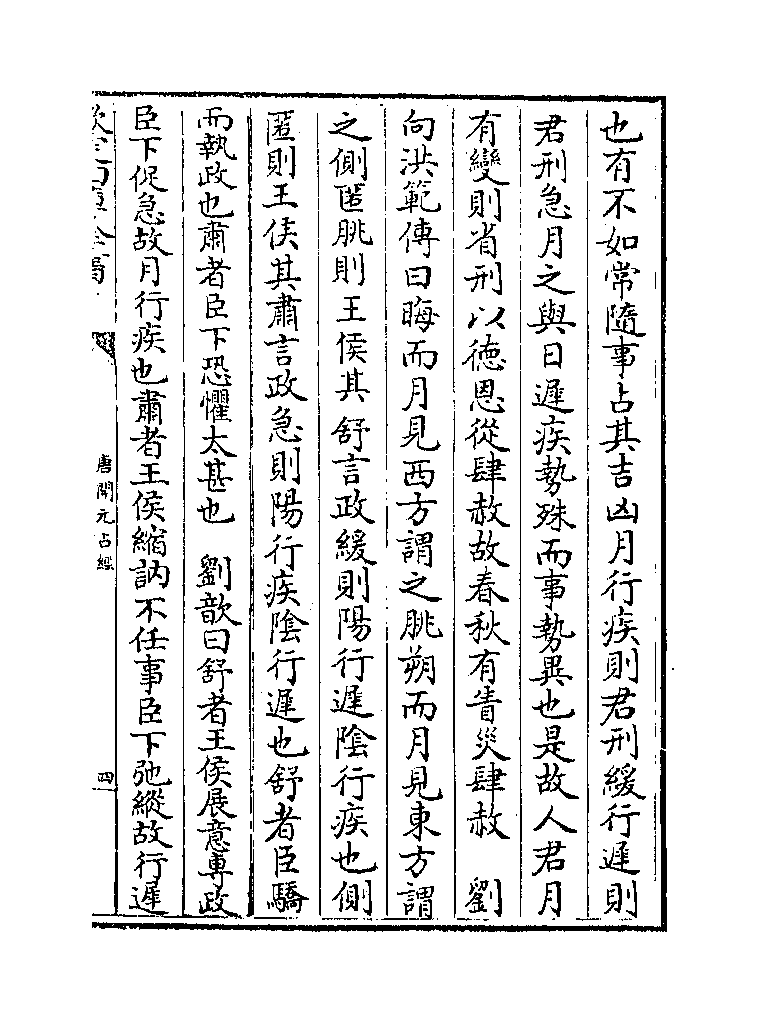 也有不如常隨事占其吉凶月行疾則君刑緩行遲則
君刑急月之與日遲疾勢殊而事勢異也是故人君月
有變則省刑以徳恩從肆赦故春秋有眚災肆赦　劉
向洪範傳曰晦而月見西方謂之朓朔而月見東方謂
之側匿朓則王侯其舒言政緩則陽行遲陰行疾也側
匿則王侯其肅言政急則陽行疾陰行遲也舒者臣驕
而執政也肅者臣下恐懼太甚也　劉歆曰舒者王侯展意專政
臣下促急故月行疾也肅者王侯縮訥不任事臣下弛縱故行遲
唐開元占經
四